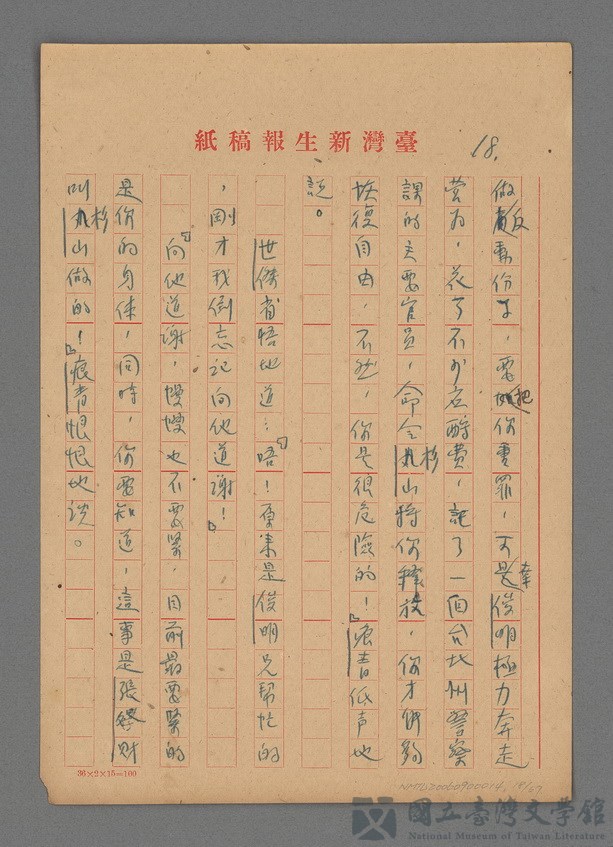 18.
紙稿報生新灣臺
做叛事份子,要把你重罪,可是幸俊明極力奔走
营为,花了不少応酧費,託了一個台北州警察
課的主要官員,命令杉山将你釋放,你才能夠
恢復自由,不然,你是很危險的!』痕青低声地
説。
世傑省悟地道:『唔!原来是俊明兄幫忙的
,剛才我倒忘記向他道謝!』
『向他道謝,慢慢也不要緊,目前最要緊的
是你的身体,同時,你要知道,這事是張財
叫杉山做的!』痕青恨恨地説。
36×2×15=100
國立臺灣文學館
National Museum of Taiwan Literature